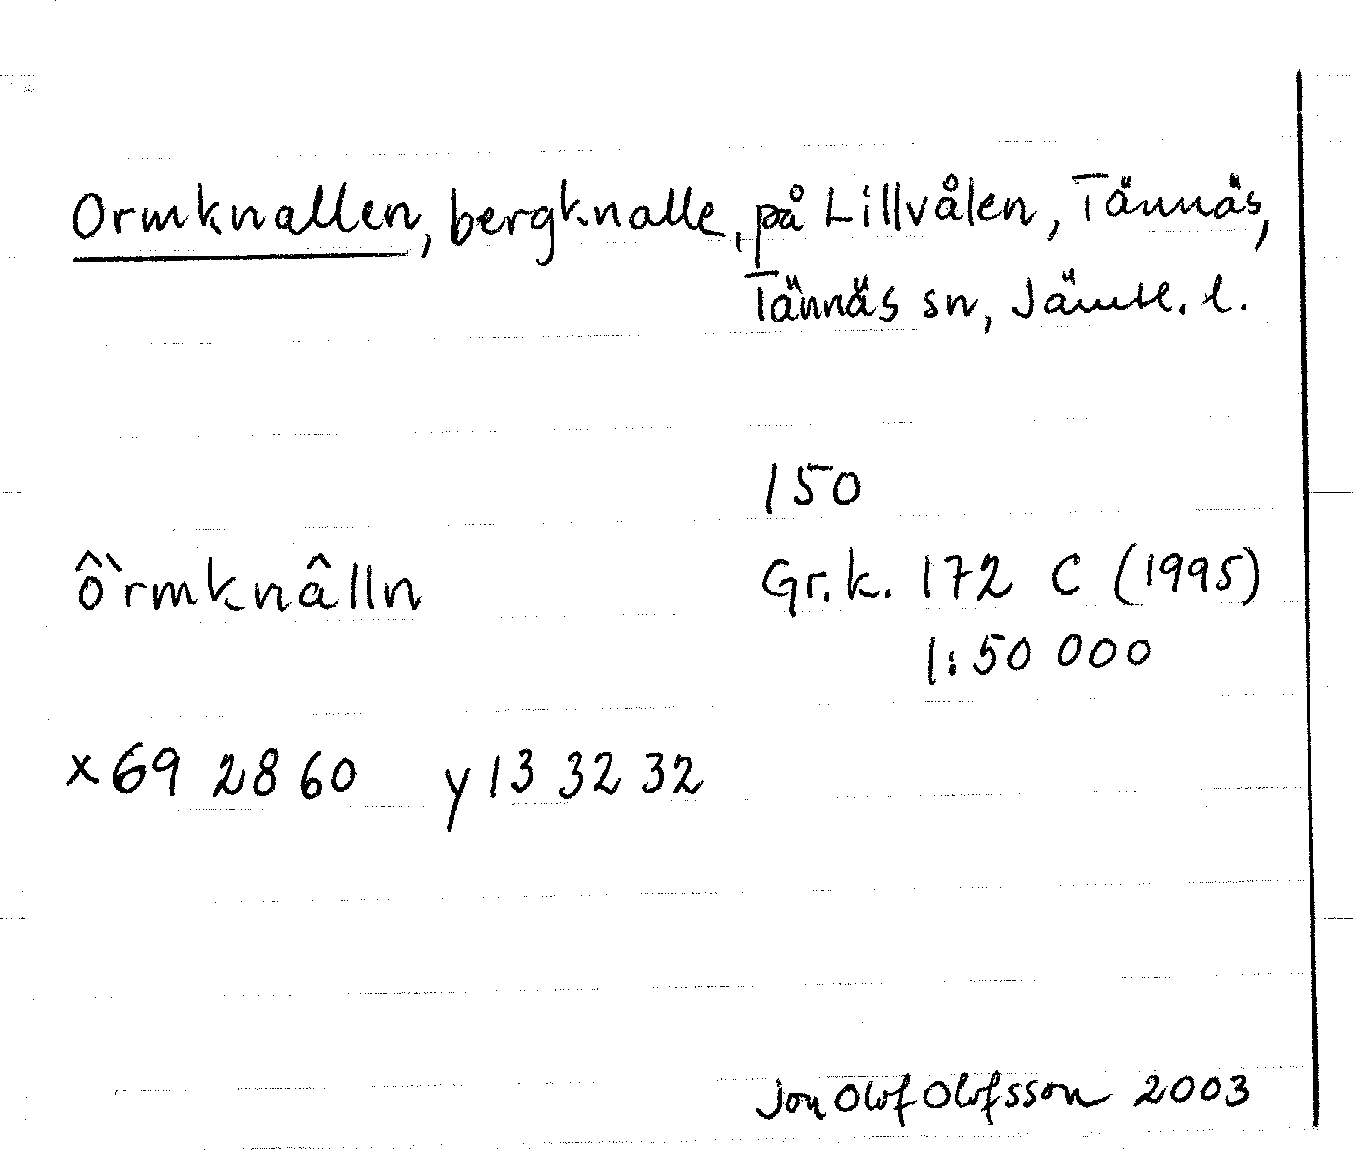 Ormknallen, bergknalle, på Lillvålen, Tännäs,
Tännäs sn, Jämtl. l.
150
ô`rmknâlln Gr.k. 172 C (1995)
1:50 000
x 69 28 60 y 13 32 32
Jon Olof Olofsson 2003